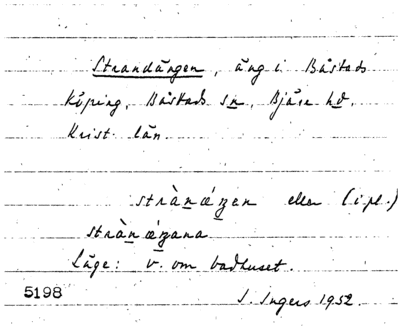 Strandängen, äng i Båstads
köping, Båstads sn, Bjäre hd.
Krist. län
stràn ǽŋen eller (i pl.)
stràn ǽŋana
Läge: v. om badhuset.
5198
I. Ingers 1932.